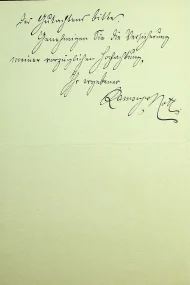 des Gutachtens bitte.
Genehmigen Sie die Versicherung
meiner vorzüglichen Hochachtung,
Ihr ergebener